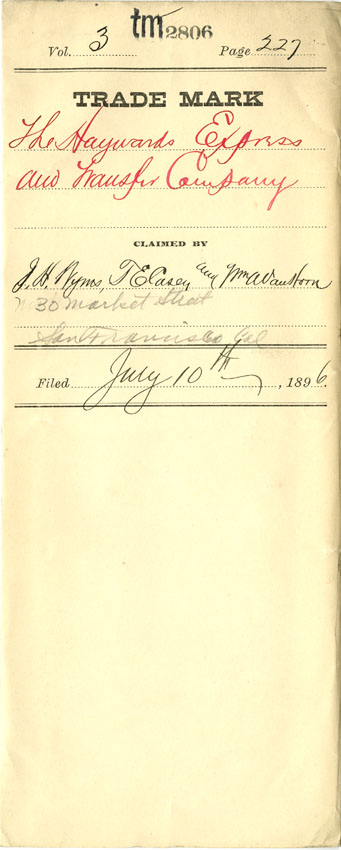 tm 2806
Vol. 3 Page 227
TRADE MARK
The Haywards Express
and Transfer Company
CLAIMED BY
J. H. Wyms T E Casey and Wm A Van Hoon
30 Market Street
San Francisco Cal
Filed July 10th, 1896.